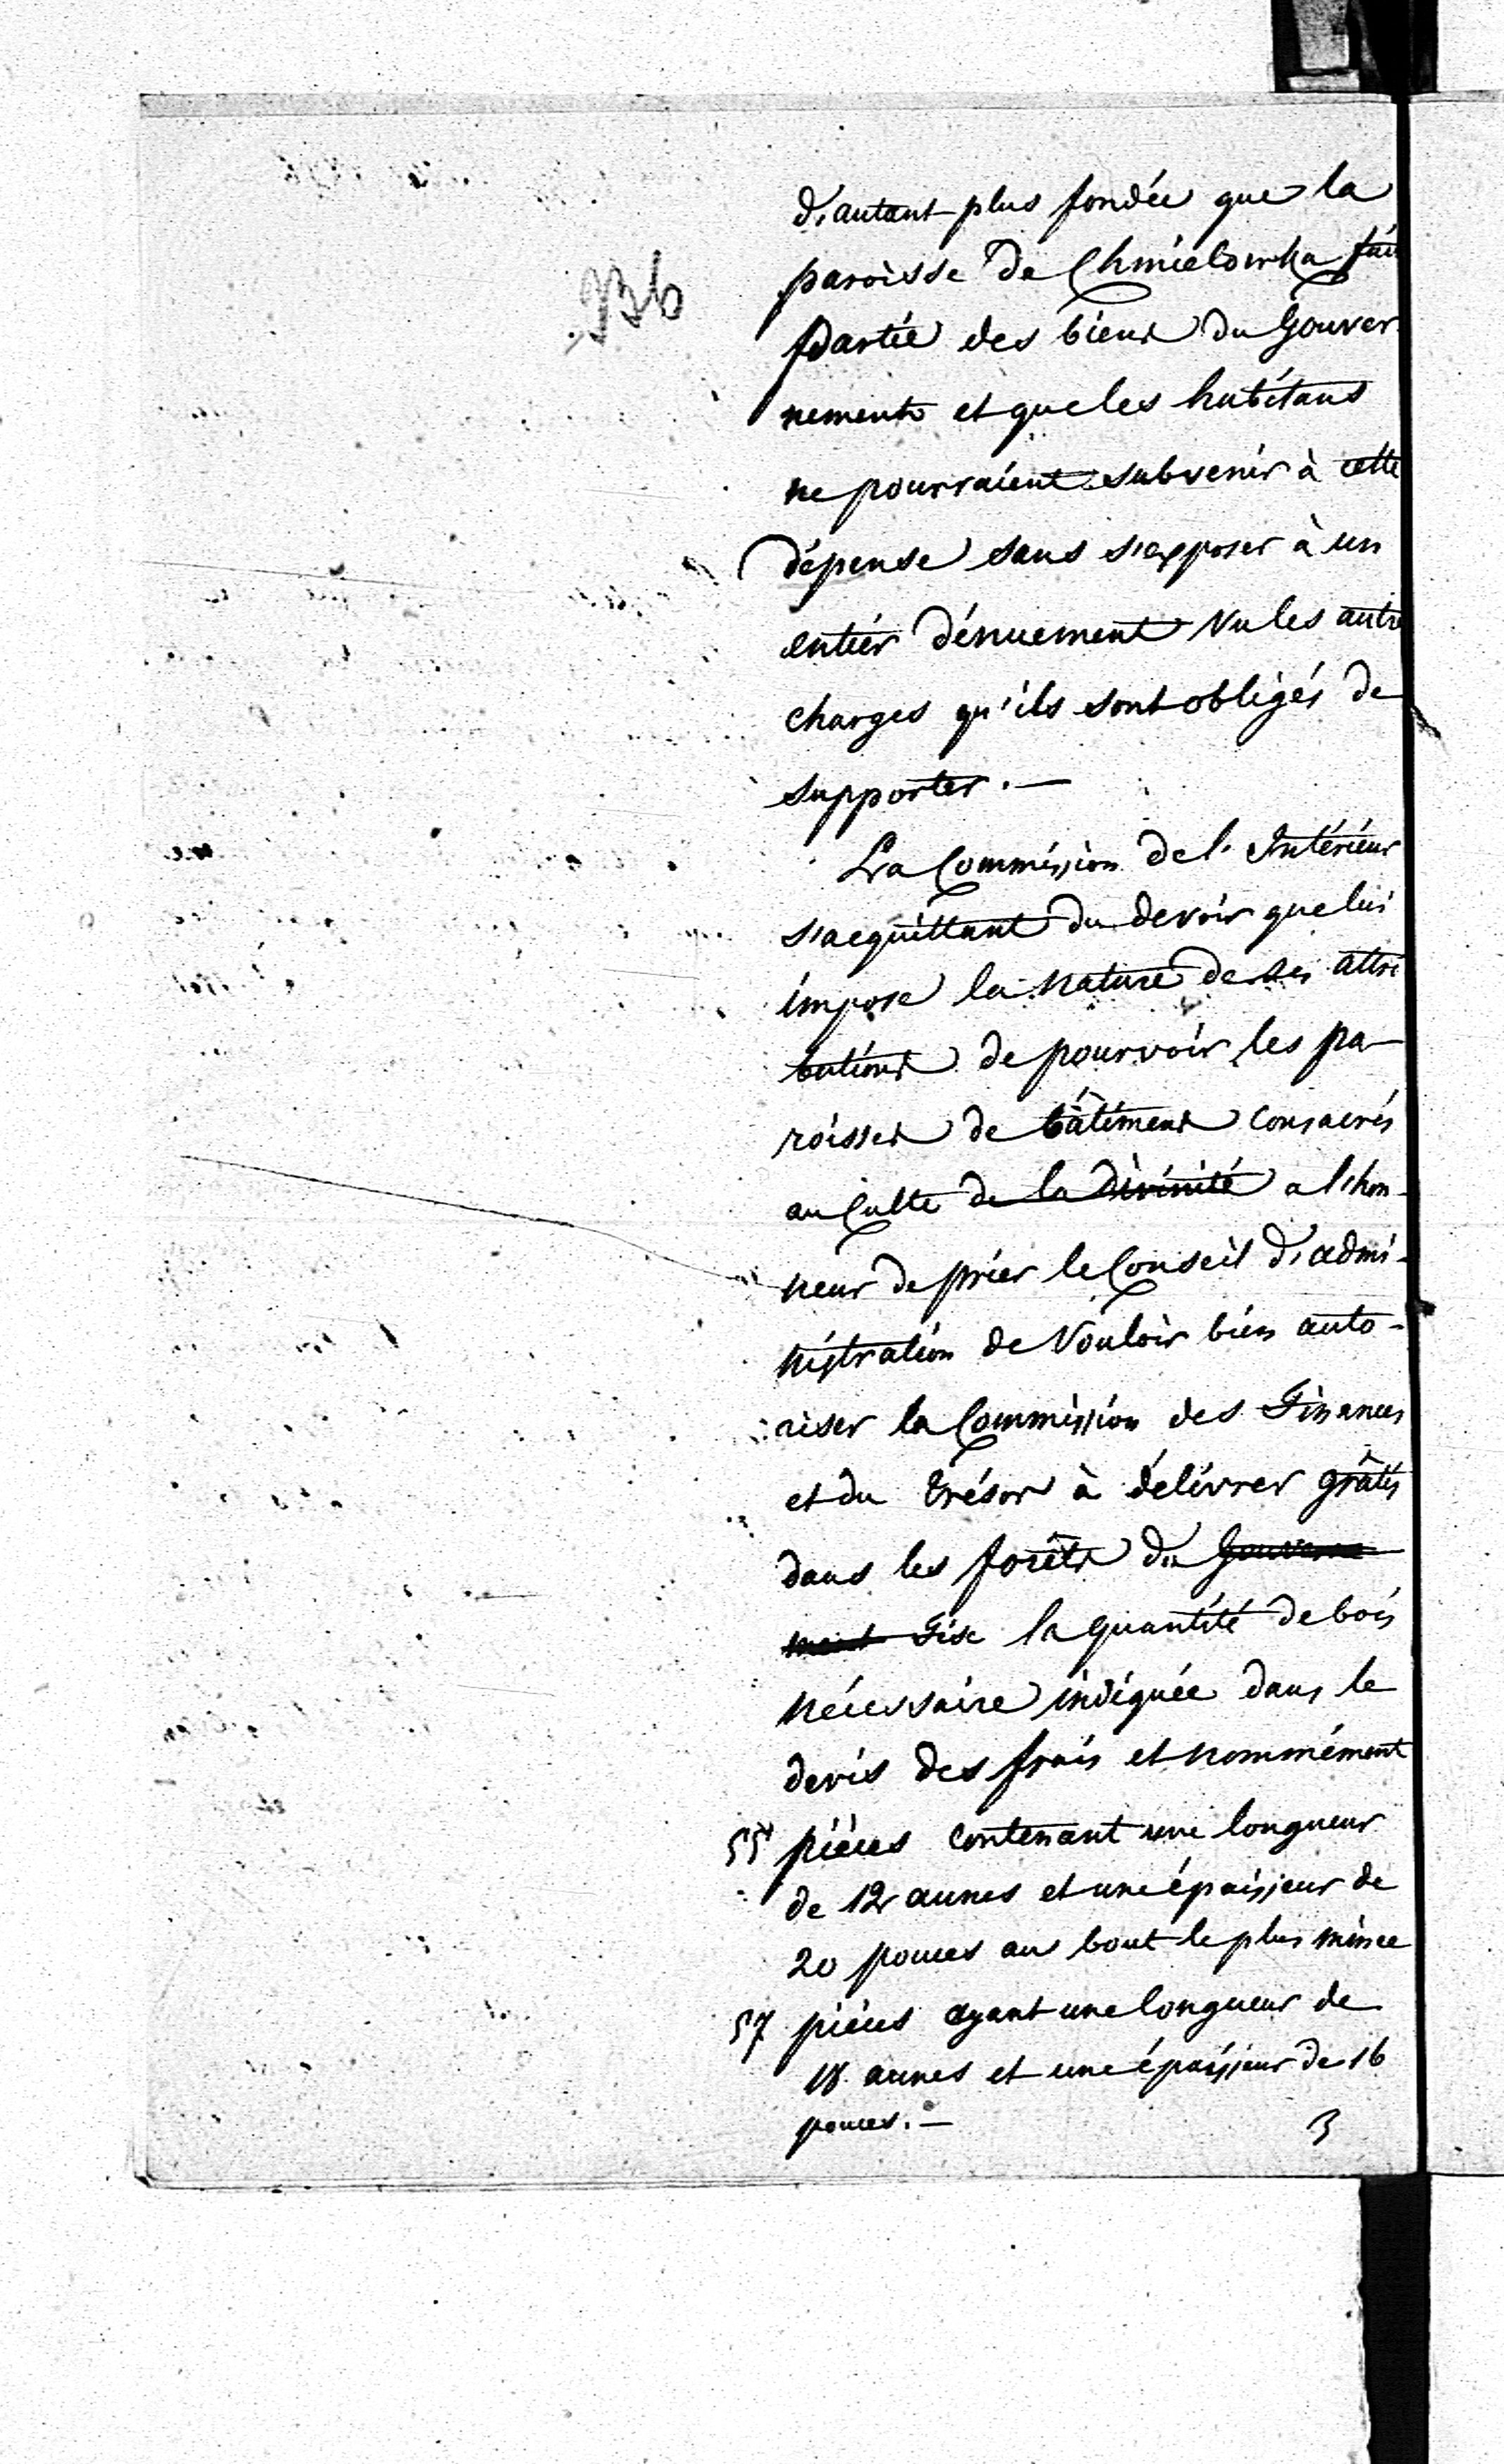 336
d'autant plus fondée que la
paroisse de Chmielowka fait
partie des biens du Gouver
nement et que les habitans
ne pourraient subvenir à cette
dépense sans s'exposer à un
entier dénuement vu les autre
charges qu'ils sont obligés de
supporter. —
La Commission de l'Intérieur
s'acquittant du devoir que lui
impose la nature de ses attri
butions de pourvoir les pa-
roisses de bâtimens consacrés
au Culte de la divinité a l'hon-
neur de prier le Conseil d'admi-
nistration de Vouloir bien auto-
riser la Commission des Finances
et du Trésor à délivrer grâtis
dans les forêts du Gouverne
ment Fisc la quantité de bois
nécessaire indiquée dans le
devis des frais et nommément
55 pièces contenant une longueur
de 12 aunes et une épaisseur de
20 pouces au bout le plus mince
57 pièces ayant une longueur de
18 aunes et une épaisseur de 16
pouces. —
3